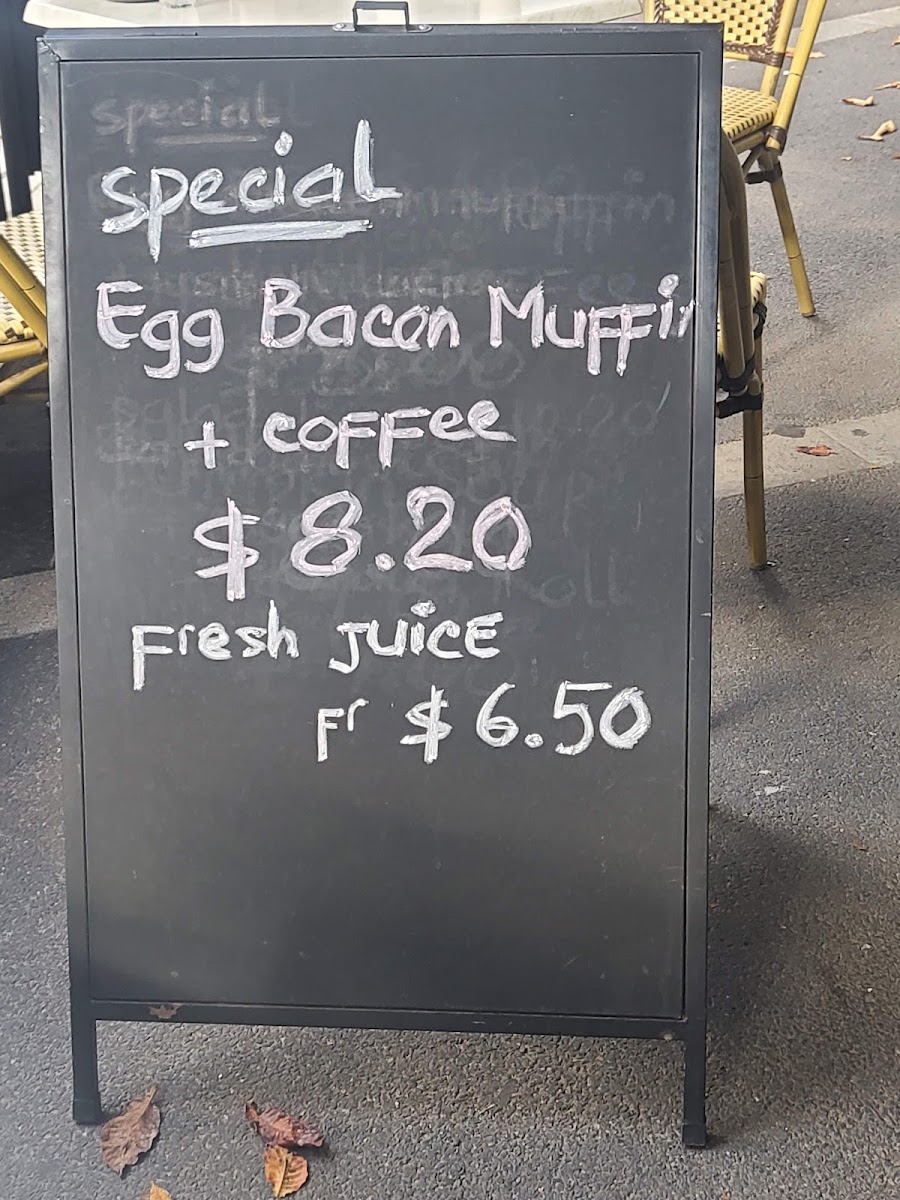 special
special
Egg Bacon Muffin
+ coffee
$8.20
Fresh JUICE
Fr $6.50